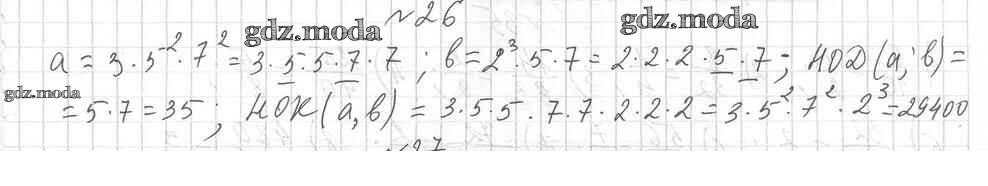 №26
gdz.moda
gdz.moda
a = 3·5²·7² = 3·5·5·7·7; b = 2³·5·7 = 2·2·2·5·7; НОД(a; b) =
gdz.moda
= 5·7 = 35; НОК(a, b) = 3·5·5·7·7·2·2·2 = 3·5²·7²·2³ = 29400